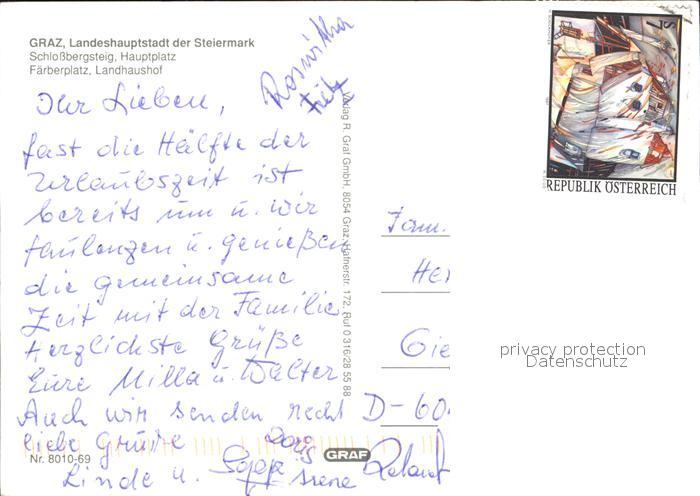 GRAZ, Landeshauptstadt der Steiermark
Schloßbergsteig, Hauptplatz
Färberplatz, Landhaushof
Roswitha
Ihr Lieben,
fast die Hälfte der
Urlaubszeit ist
bereits um u. wir
faulenzen u. genießen
die gemeinsame
Zeit mit der Familie
Herzlichste Grüße
Eure Milla u. Walter
Auch wir senden recht
liebe Grüße
Linde u. Sepp
Doris
Irene
Roland
Nr. 8010-69
GRAF
Verlag R. Graf GmbH, 8054 Graz, Hafnerstr. 172, Ruf 0 316/28 55 88
7
REPUBLIK ÖSTERREICH
Fam.
Her
Gie
D-60
privacy protection
Datenschutz